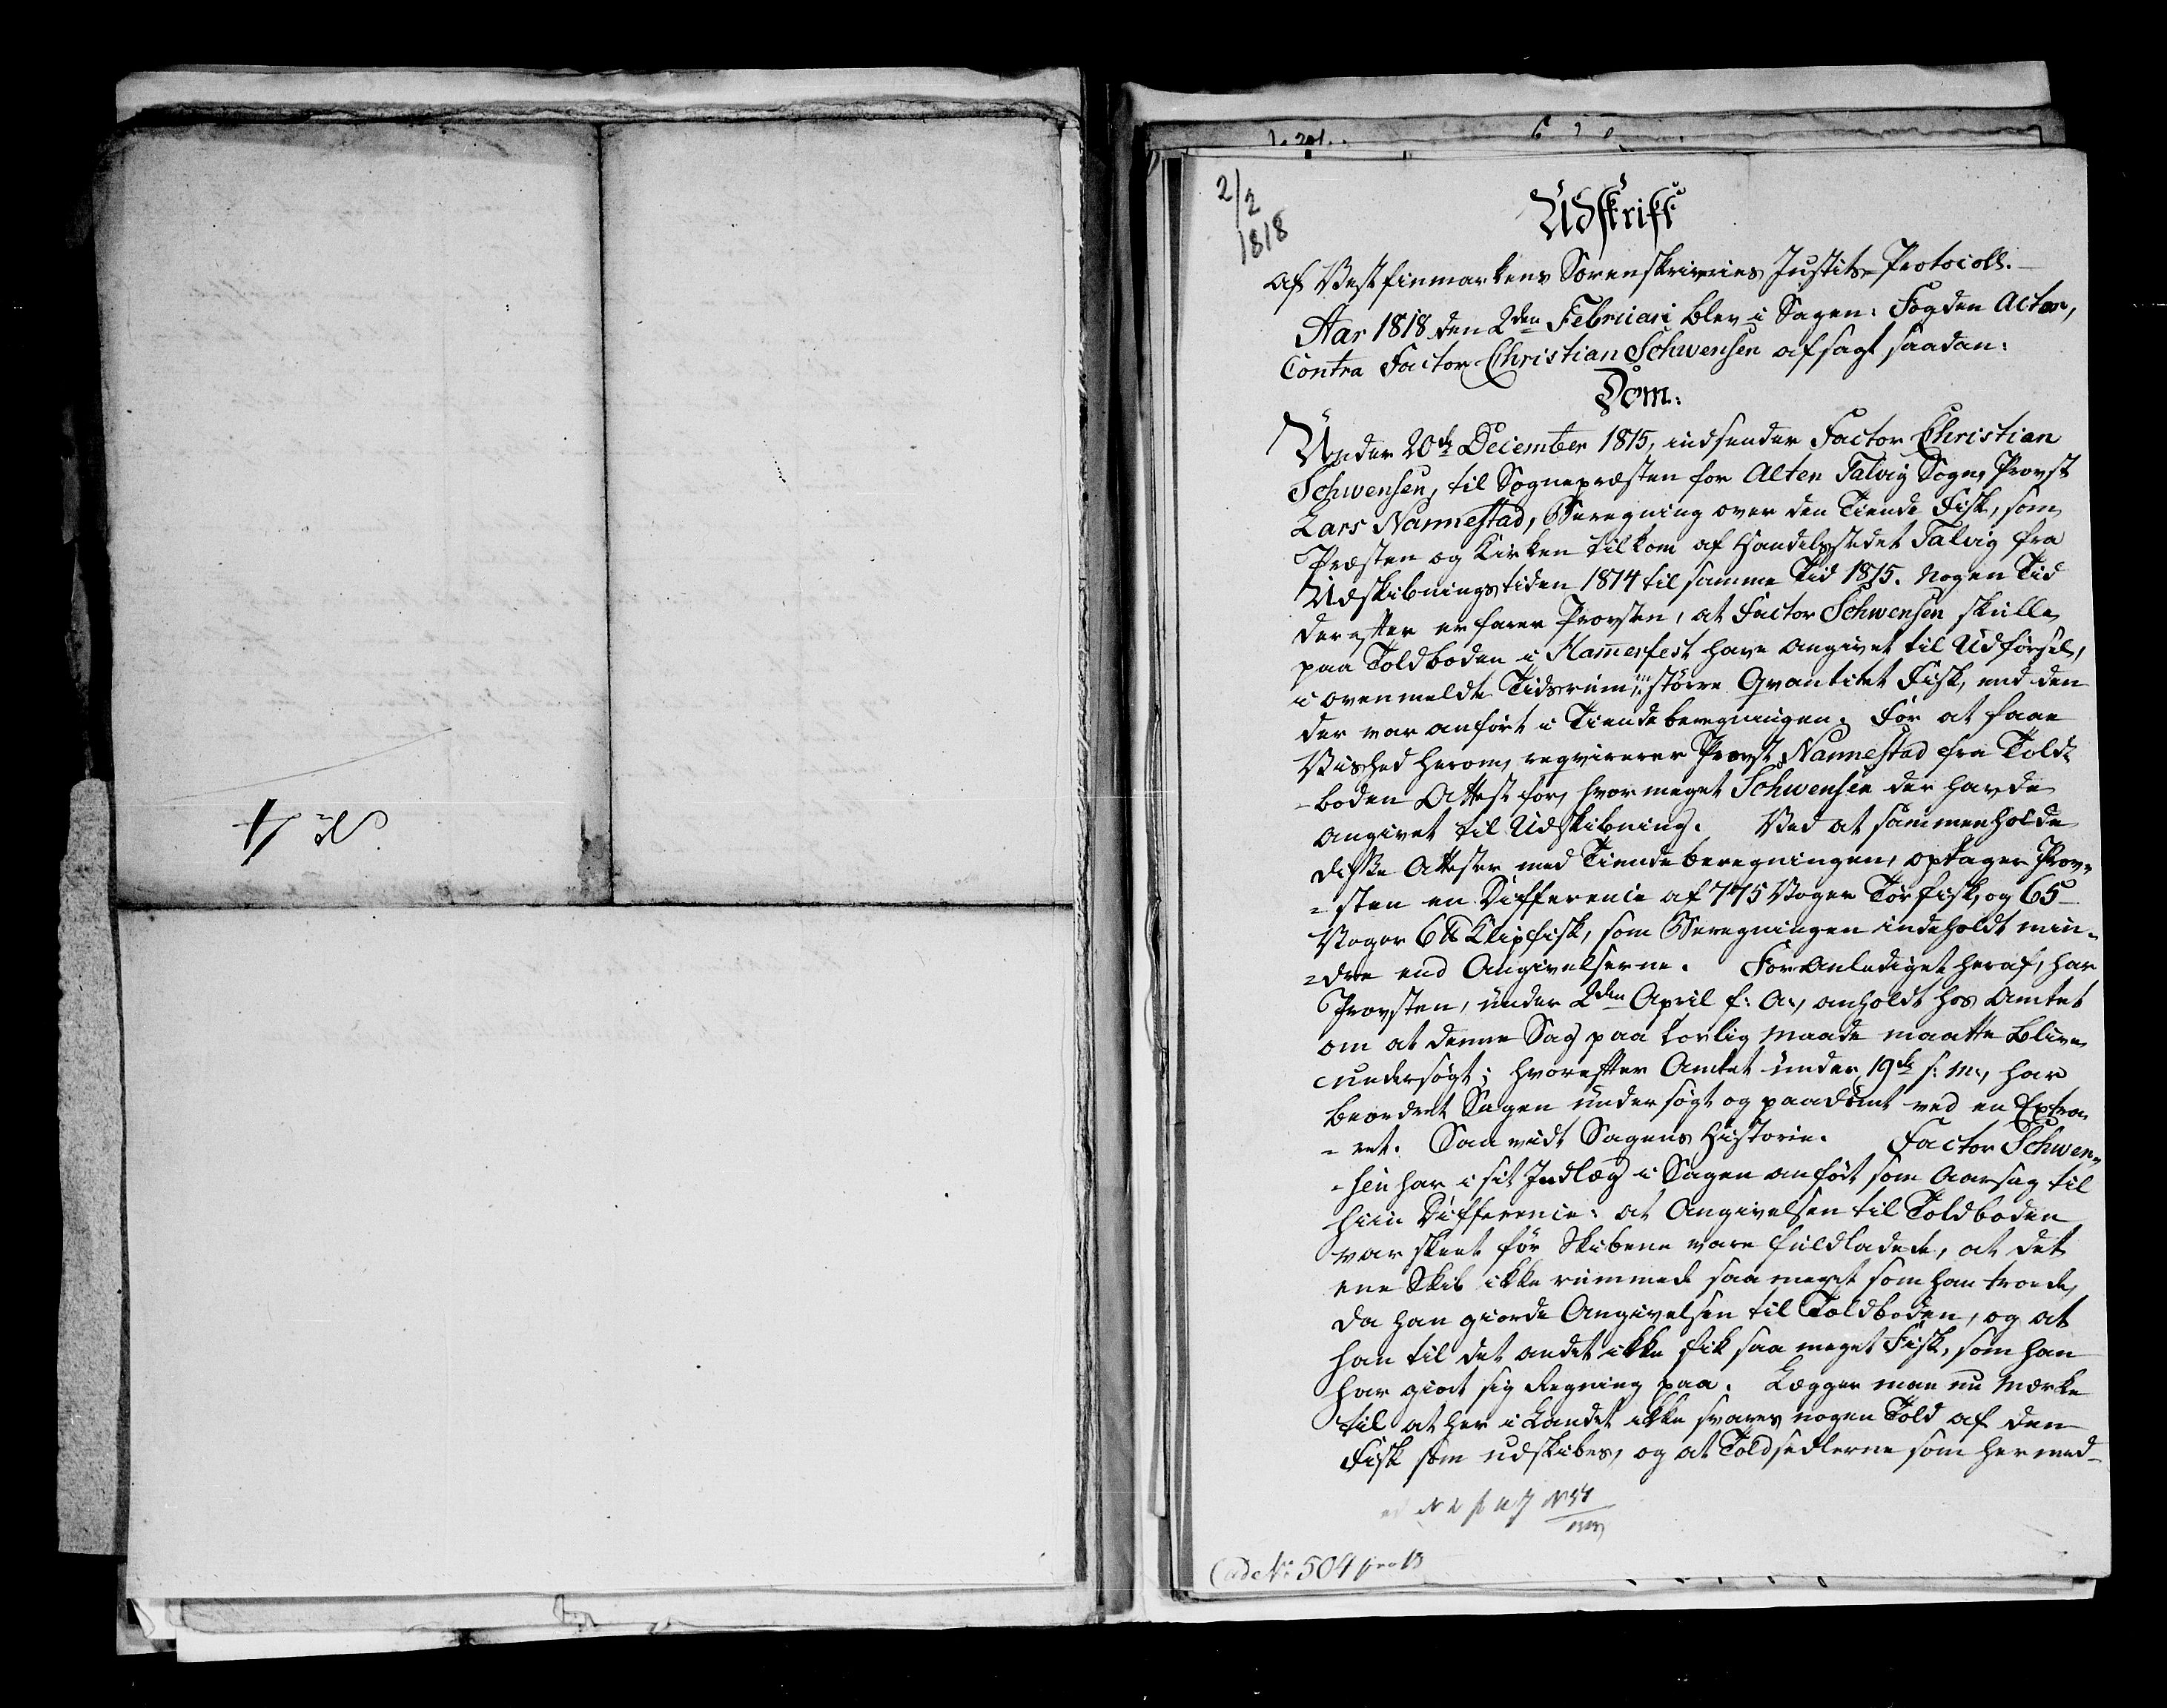 2/2
1818
Udskrift
af Vestfinmarkens Sorenskriveries Justits-Protocoll.
Aar 1818 den 2den Februari blev i Sagen: Fogden Actor,
Contra Factor Christian Schwensen afsagt saadan:
Dom:
Under 20de December 1815, indsender Factor Christian
Schwensen, til Sognepræsten for Alten Talvig Sogn, Provst
Lars Nannestad, Beregning over den Tiende Fisk, som
Præsten og Kirken tilkom af Handelsstedet Talvig fra
Udskibningstiden 1814 til samme Tid 1815. Nogen Tid
derefter erfarer Provsten, at Factor Schwensen skulle
paa Toldboden i Hamerfest have angivet til Udførsel,
i ovenmeldte Tidsrum, større Qvantitet Fisk, end den
der var anført i Tiendeberegningen. For at faae
Vished herom, reqvirerer Provst Nannestad fra Told-
-boden Attest for, hvormeget Schwensen der havde
angivet til Udskibning. Ved at sammenholde
disse Attester med Tiendeberegningen, optager Prov-
-sten en Difference af 775 Voger Tørfisk, og 65
Voger 6 ℔ Klipfisk, som Beregningen indeholdt min-
-dre end Angivelserne. Foranlediget heraf, har
Provsten, under 2den April f: A:, anholdt hos Amtet
om at denne Sag paa lovlig Maade maatte blive
undersøgt; hvorefter Amtet under 19de s: M:, har
beordret Sagen undersøgt og paadømt ved en Extra-
-ret. Saavidt Sagens Historie. Factor Schwen-
-sen har i sit Indlæg i Sagen anført som Aarsag til
hiin Difference: at Angivelsen til Toldboden
var skeet før Skibene vare fuldladede, at det
ene Skib ikke rummede saa meget som han troede,
da han giorde Angivelsen til Toldboden, og at
han til det andet ikke fik saa meget Fisk, som han
har giort sig Regning paa. Lægger man nu Mærke
til at her i Landet ikke svares nogen Told af den
Fisk som udskibes, og at Toldsedlerne som hermed-
ad No 504 pro 18